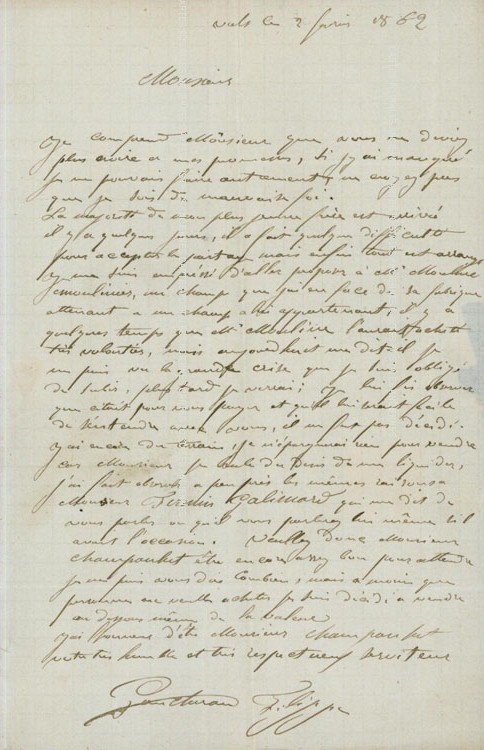 vals le 2 février 1862
Monsieur
Je comprend Monsieur que vous ne deviez
plus croire a mes promesses, si j'y ai manqué
Je ne pouvais faire autrement, ne croyez pas
que je sois de mauvaise foi.
La majorité de mon plus jeune frère est arrivé
il y a quelques jours, il a fait quelque difficulté
pour accepter le partage mais enfin tout est arrangé
je me suis empréssé d'aller proposer à Mr Moulin
un champ que j'ai en face de sa fabrique
attenant a un champ a lui appartenant, il y a
quelques temps que Mr l'aurait acheté
très volontié, mais aujourdhuit me dit-il je
ne puis vu la grande crise que je suis obligé
de subir, plus tard je verrai; je lui ai observé
que c'était pour vous payer et qu'il lui serait facile
de s'entendre avec vous, il ne s'est pas décidé.
j'ai encore du terrain, je n'épargnerai rien pour vendre
car Monsieur je brule du désir de me liquider,
j'ai fait à peu près les mêmes raisons a
Monsieur Galimard qui me dit de
vous parler ou qu'il vous parlerai lui même s'il
avait l'occasion. Veuillez donc Monsieur
Champanhet être encore assez bon pour attendre
je ne puis vous dire combien, mais a moins que
personne ne veuille acheter je suis décidé a vendre
au dessous même de la valeur
j'ai l'honneur d'être Monsieur Champanhet
votre très humble et très respectueux serviteur
Philippe